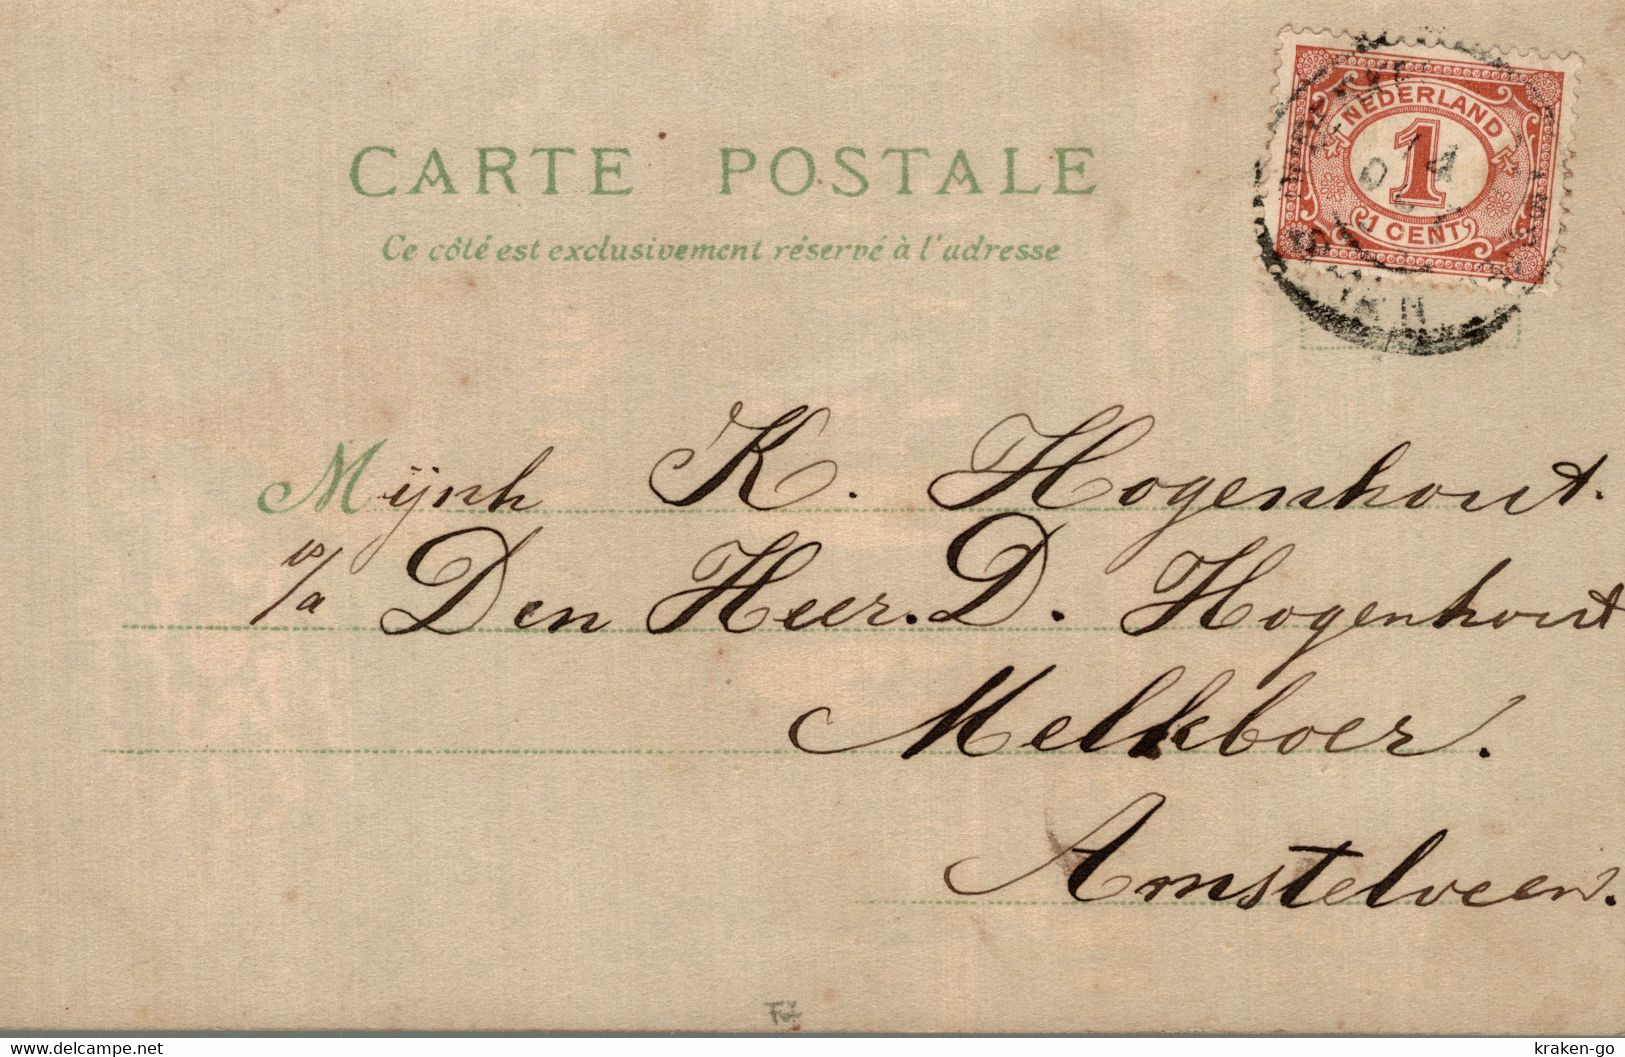 CARTE POSTALE
Ce côté est exclusivement réservé à l'adresse
NEDERLAND
1
1 CENT
Mijnh K. Hogenhout.
p/a Den Heer. D. Hogenhout
Melkboer.
Amstelveen.
www.delcampe.net
kraken-go